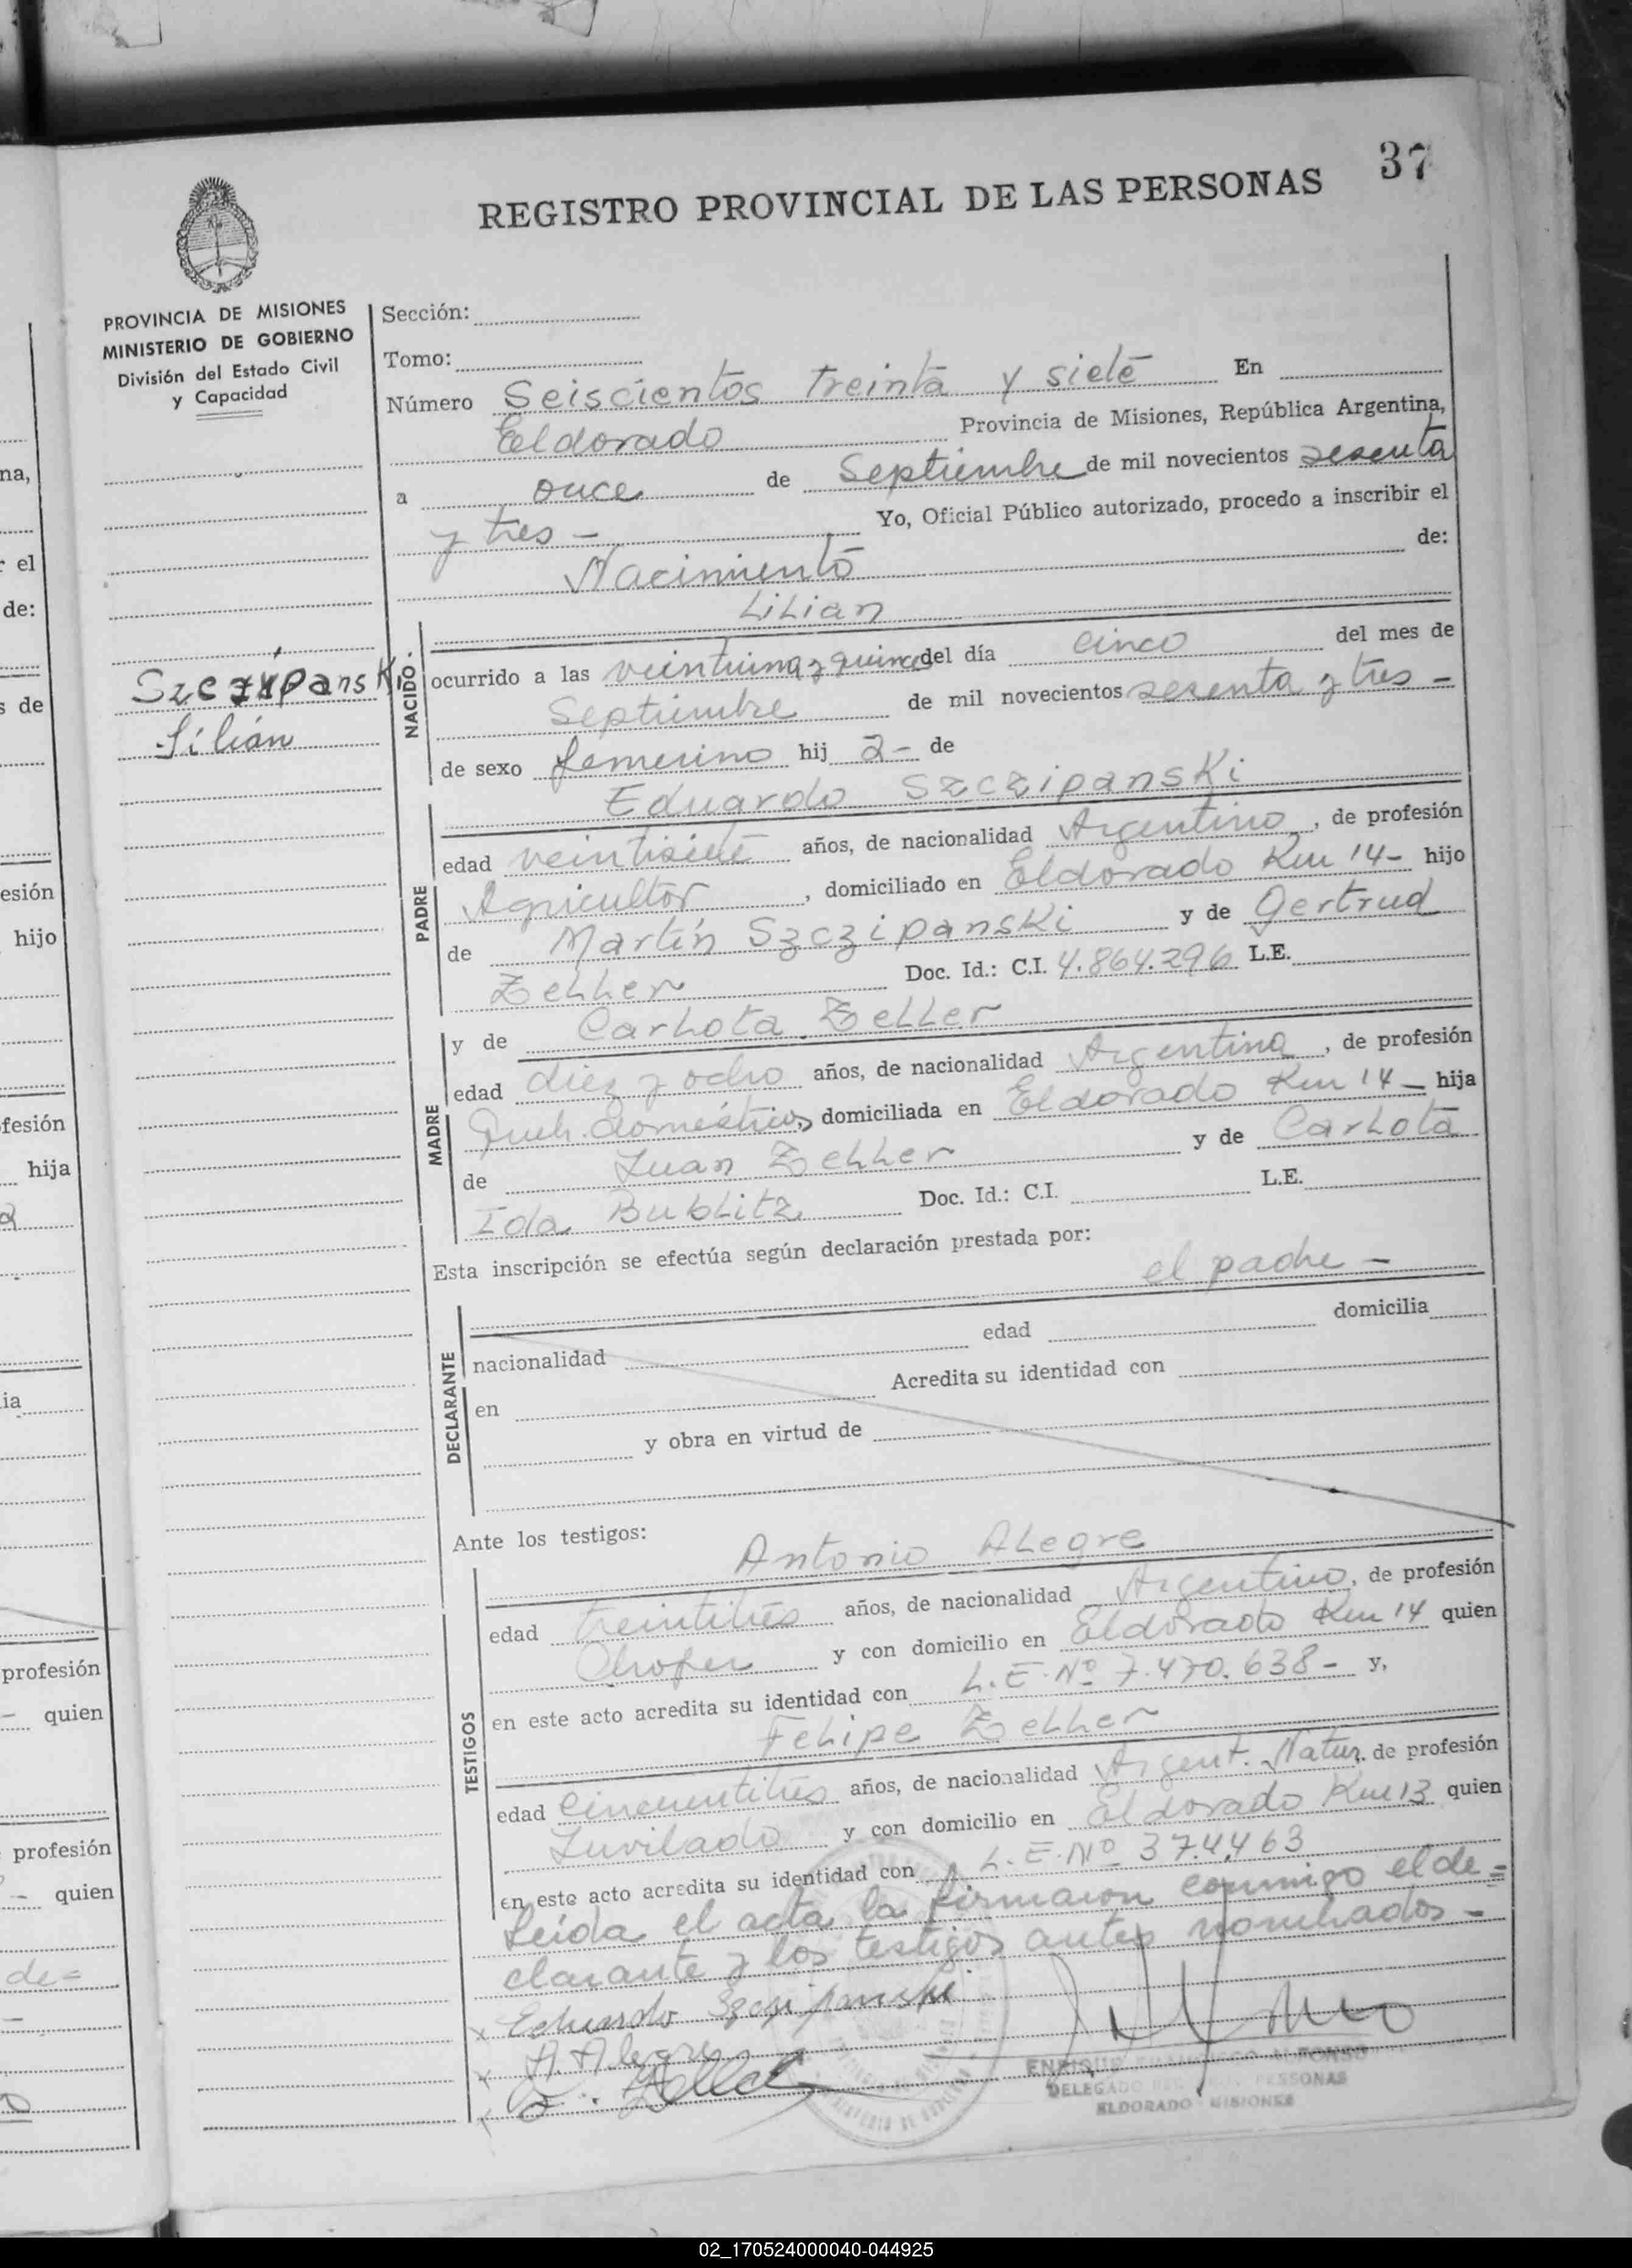 37
REGISTRO PROVINCIAL DE LAS PERSONAS
PROVINCIA DE MISIONES
MINISTERIO DE GOBIERNO
División del Estado Civil
y Capacidad
Szczypanski
Lilián
Sección:
Tomo:
Número Seiscientos treinta y siete En
Eldorado Provincia de Misiones, República Argentina,
a once de Septiembre de mil novecientos sesenta
y tres - Yo, Oficial Público autorizado, procedo a inscribir el
Nacimiento de:
Lilian
NACIDO
ocurrido a las veintiuna y quince del día cinco del mes de
Septiembre de mil novecientos sesenta y tres -
de sexo femenino hij a - de
Eduardo Szczipanski
PADRE
edad veintisiete años, de nacionalidad Argentino, de profesión
Agricultor, domiciliado en Eldorado Km 14- hijo
de Martín Szczipanski y de Gertrud
Zeller Doc. Id.: C.I. 4.864.296 L.E.
y de Carlota Zeller
MADRE
edad diez y ocho años, de nacionalidad Argentina, de profesión
Queh. domésticos, domiciliada en Eldorado Km 14- hija
de Juan Zeller y de Carlota
Ida Bublitz Doc. Id.: C.I. L.E.
Esta inscripción se efectúa según declaración prestada por:
el padre -
DECLARANTE
nacionalidad edad domicilia
en Acredita su identidad con
y obra en virtud de
Ante los testigos:
Antonio Alegre
TESTIGOS
edad treintitrés años, de nacionalidad Argentino, de profesión
Chofer y con domicilio en Eldorado Km 14 quien
en este acto acredita su identidad con L.E. Nº 7.470.638- y,
Felipe Zeller
edad cincuentitrés años, de nacionalidad Argent. Natur. de profesión
Juvilado y con domicilio en Eldorado Km 13 quien
en este acto acredita su identidad con L.E. Nº 374463
Leída el acta la firmaron conmigo el de=
clarante y los testigos antes nombrados-
Eduardo Szczipanski
A Alegre
Zeller
ENRIQUE FRANCISCO ALFONSO
DELEGADO REG. PERSONAS
ELDORADO MISIONES
na,
r el
de:
s de
esión
hijo
fesión
hija
ia
profesión
quien
profesión
quien
de=
02_170524000040-044925